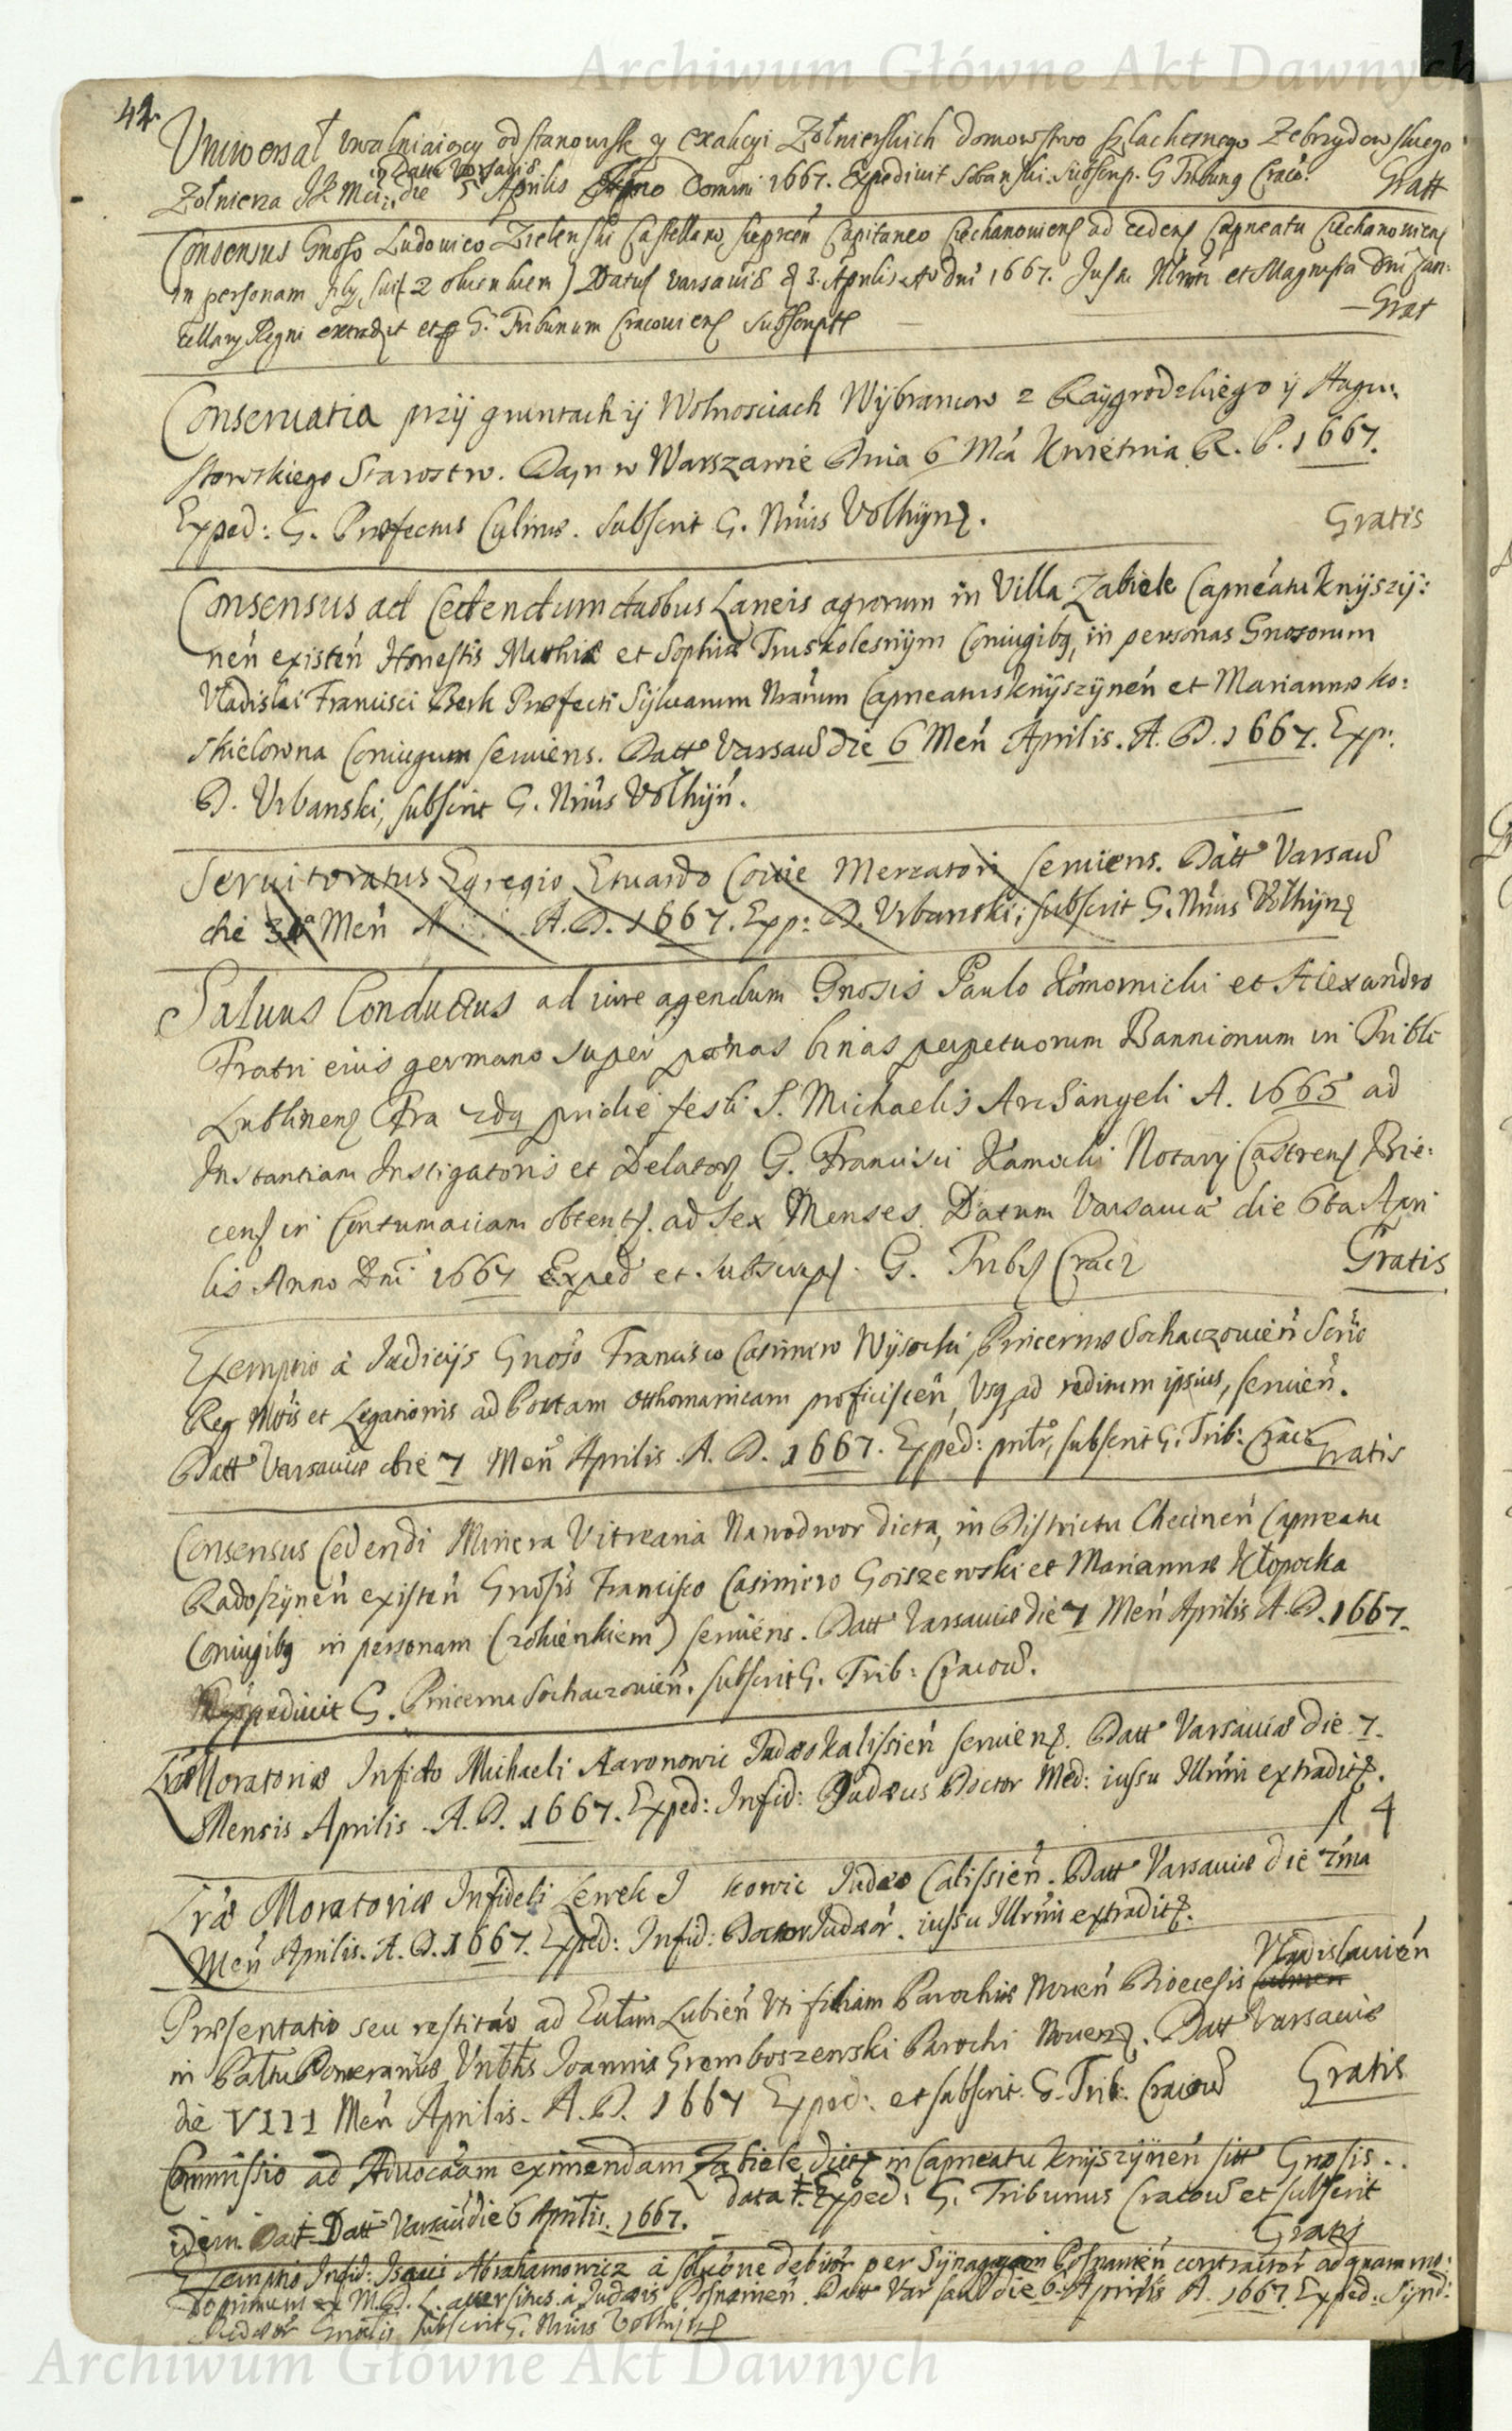 Archiwum Główne Akt Dawnych
42.
Uniwersał uwalniaiący od stanowisk y exakcyi Żołnierskich domowstwo szlachetnego Zebrzydowskiego
Datta Varsaviæ
Żołnierza JK Mci: die 5 Aprilis Anno Domini 1667. Expedivit Subscrip. G Tribung Craco: Gratt
Consensus Gnoso Ludovico Zielenski Castellano Siepricen Capitaneo Ciechanoviens ad cedens Capneatu Ciechanoviens
in personam filij sui (z okienkiem) Datus Varsaviæ d 3. Aprilis Ao Dni 1667. Jussu Illmi et Magnifici Dni Can:
cellarij Regni extradit et G. Tribunum Cracoviens subscript — Grat
Conservatia przÿ gruntach ÿ Wolnosciach Wÿbrancow z Raÿgrodzkiego ÿ Augu:
stowskiego Starostw. Dan w Warszawie Dnia 6 Mca Kwietnia R. P. 1667.
Exped: G. Præfectus Culinæ. Subscrit G. Nrius Volhÿnę. Gratis
Consensus ad Cedendum duobus Laneis agrorum in Villa Zabiele Capneatu Knÿszÿ:
nen existen Honestis Mathiæ et Sophiæ Truskolesnÿm Coniugibq, in personas Gnosorum
Vladislai Francisci Berk Præfecti Sÿlvarum Nrarum Capneatus Knÿszÿnen et Mariannæ Ko:
skielowna Coniugum serviens. Datt Varsav die 6 Men Aprilis. A. D. 1667. Exp:
D. Urbanski, subscrit G. Nrius Volhÿn.
Servitoratus Egregio Eduardo Mercatori serviens. Datt Varsav
die Men A. D. 1667. Exp: D. Urbanski; subscrit G. Nrius Volhÿnę
Salvus Conductus ad iure agendum Gnosis Paulo Komornicki et Alexandro
Fratri eius germano super pœnas binas perpetuorum Bannionum in Tribli
Lublinens fra 2da pridie festi S. Michaelis Archangeli A. 1665 ad
Instantiam Instigatoris et Delatorę G. Francisci Kamocki Notarij Castrens Brie:
cens in Contumaciam obtents. ad Sex Menses. Datum Varsaviæ die 6ta Apri
lis Anno Dni 1667 Exped et subscrips. G. Tribg Crac Gratis
Exemptio à Judicijs Gnoso Francisco Casimiro Wÿsocki, Pincernæ Sochaczovien Scrio
Reg Mttis et Legationis ad Portam Otthomanicam proficiscen, Usq ad reditum ipsius, servien.
Datt Varsaviæ die 7 Men Aprilis. A. D. 1667. Exped: pnttr, subscrit G. Trib: Crac Gratis
Consensus Cedendi Minera Vitrearia Nawodwor dicta, in Districtu Checinen Capneatu
Radoszÿnen existen Gnosis Francisco Casimiro Goiszewski et Mariannæ Kłopocka
Coniugibq in personam (z okienkiem) serviens. Datt Varsaviæ die 7 Men Aprilis A. D. 1667.
Expedivit G. Pincerna Sochaczovien. subscrit G. Trib: Cracov.
Lræ Moratoriæ Infido Michaeli Aaronowic Judæo Kalissien serviens. Datt Varsaviæ die 7.
Mensis Aprilis. A. D. 1667. Exped: Infid: Judæus Doctor Med: iussu Illrmi extradits.
f 4
Lræ Moratoriæ Infideli Lewek J kowic Judæo Calissien. Datt Varsaviæ die 7ma
Men Aprilis. A. D. 1667. Exped: Infid: Doctor Judæor. iussu Illrmi extradits.
Vladislavien
Præsentatio seu restitao ad Ecclam Lubien Uti filiam Parochiæ Noven Dioecesis
in Pattu Pomeraniæ Vnblis Joannis Gremboszewski Parochi Novens. Datt Varsaviæ
die VIII Men Aprilis. A. D. 1667 Exped: et subscrit. G. Trib. Cracov Gratis
Commissio ad Advocaam eximendam Zabiele dict in Capneatu Knÿszÿnen sitt Gnosis..
data Exped: G. Tribunus Cracov et subscrit
idem Datt Varsav die 6 Aprilis. 1667. Gratis
Exemptio Infid: Isaaci Abrahamowicz à solucone debitor per Sÿnagogam Posnanien contractor ad quam mo:
L. à Judæis Posnanien. Datt Varsav die 6. Aprilis A. 1667. Exped: Sÿnd:
Judæor Gratis subscrit G. Nrius Volhÿns
Archiwum Główne Akt Dawnych